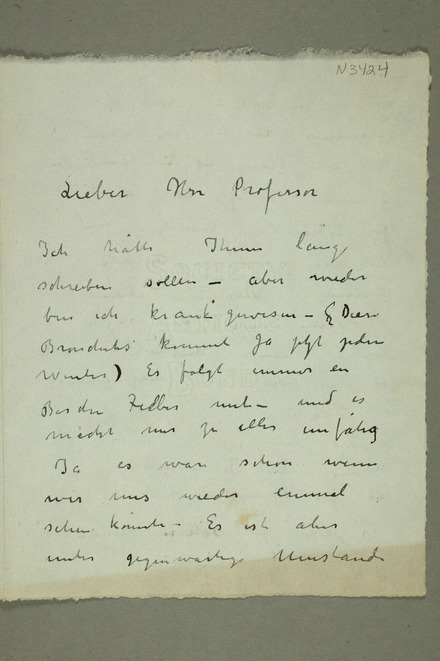 N3424
Lieber Herr Professor
Ich hätte Ihnen länge
schreiben sollen – aber wieder
bin ich krank gewesen – (Diese
Bronchitis kommt ja jetzt jeden
Winter) Es folgt immer ein
Fieber mit – und es
macht mir zu alles unfähig
Ja es wäre schön wenn
wir uns wieder einmal
sehen könnte – Es ist aber
unter gegenwärtige Umstände